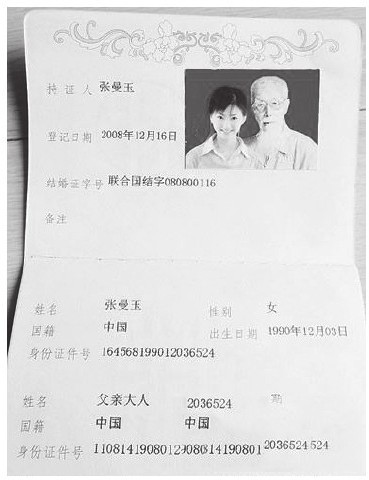 持证人 张曼玉
登记日期 2008年12月16日
结婚证字号 联合国结字080800116
备注
姓名 张曼玉 性别 女
国籍 中国 出生日期 1990年12月03日
身份证件号 164568199012036524
姓名 父亲大人 2036524
国籍 中国 中国
身份证件号 2036524 524